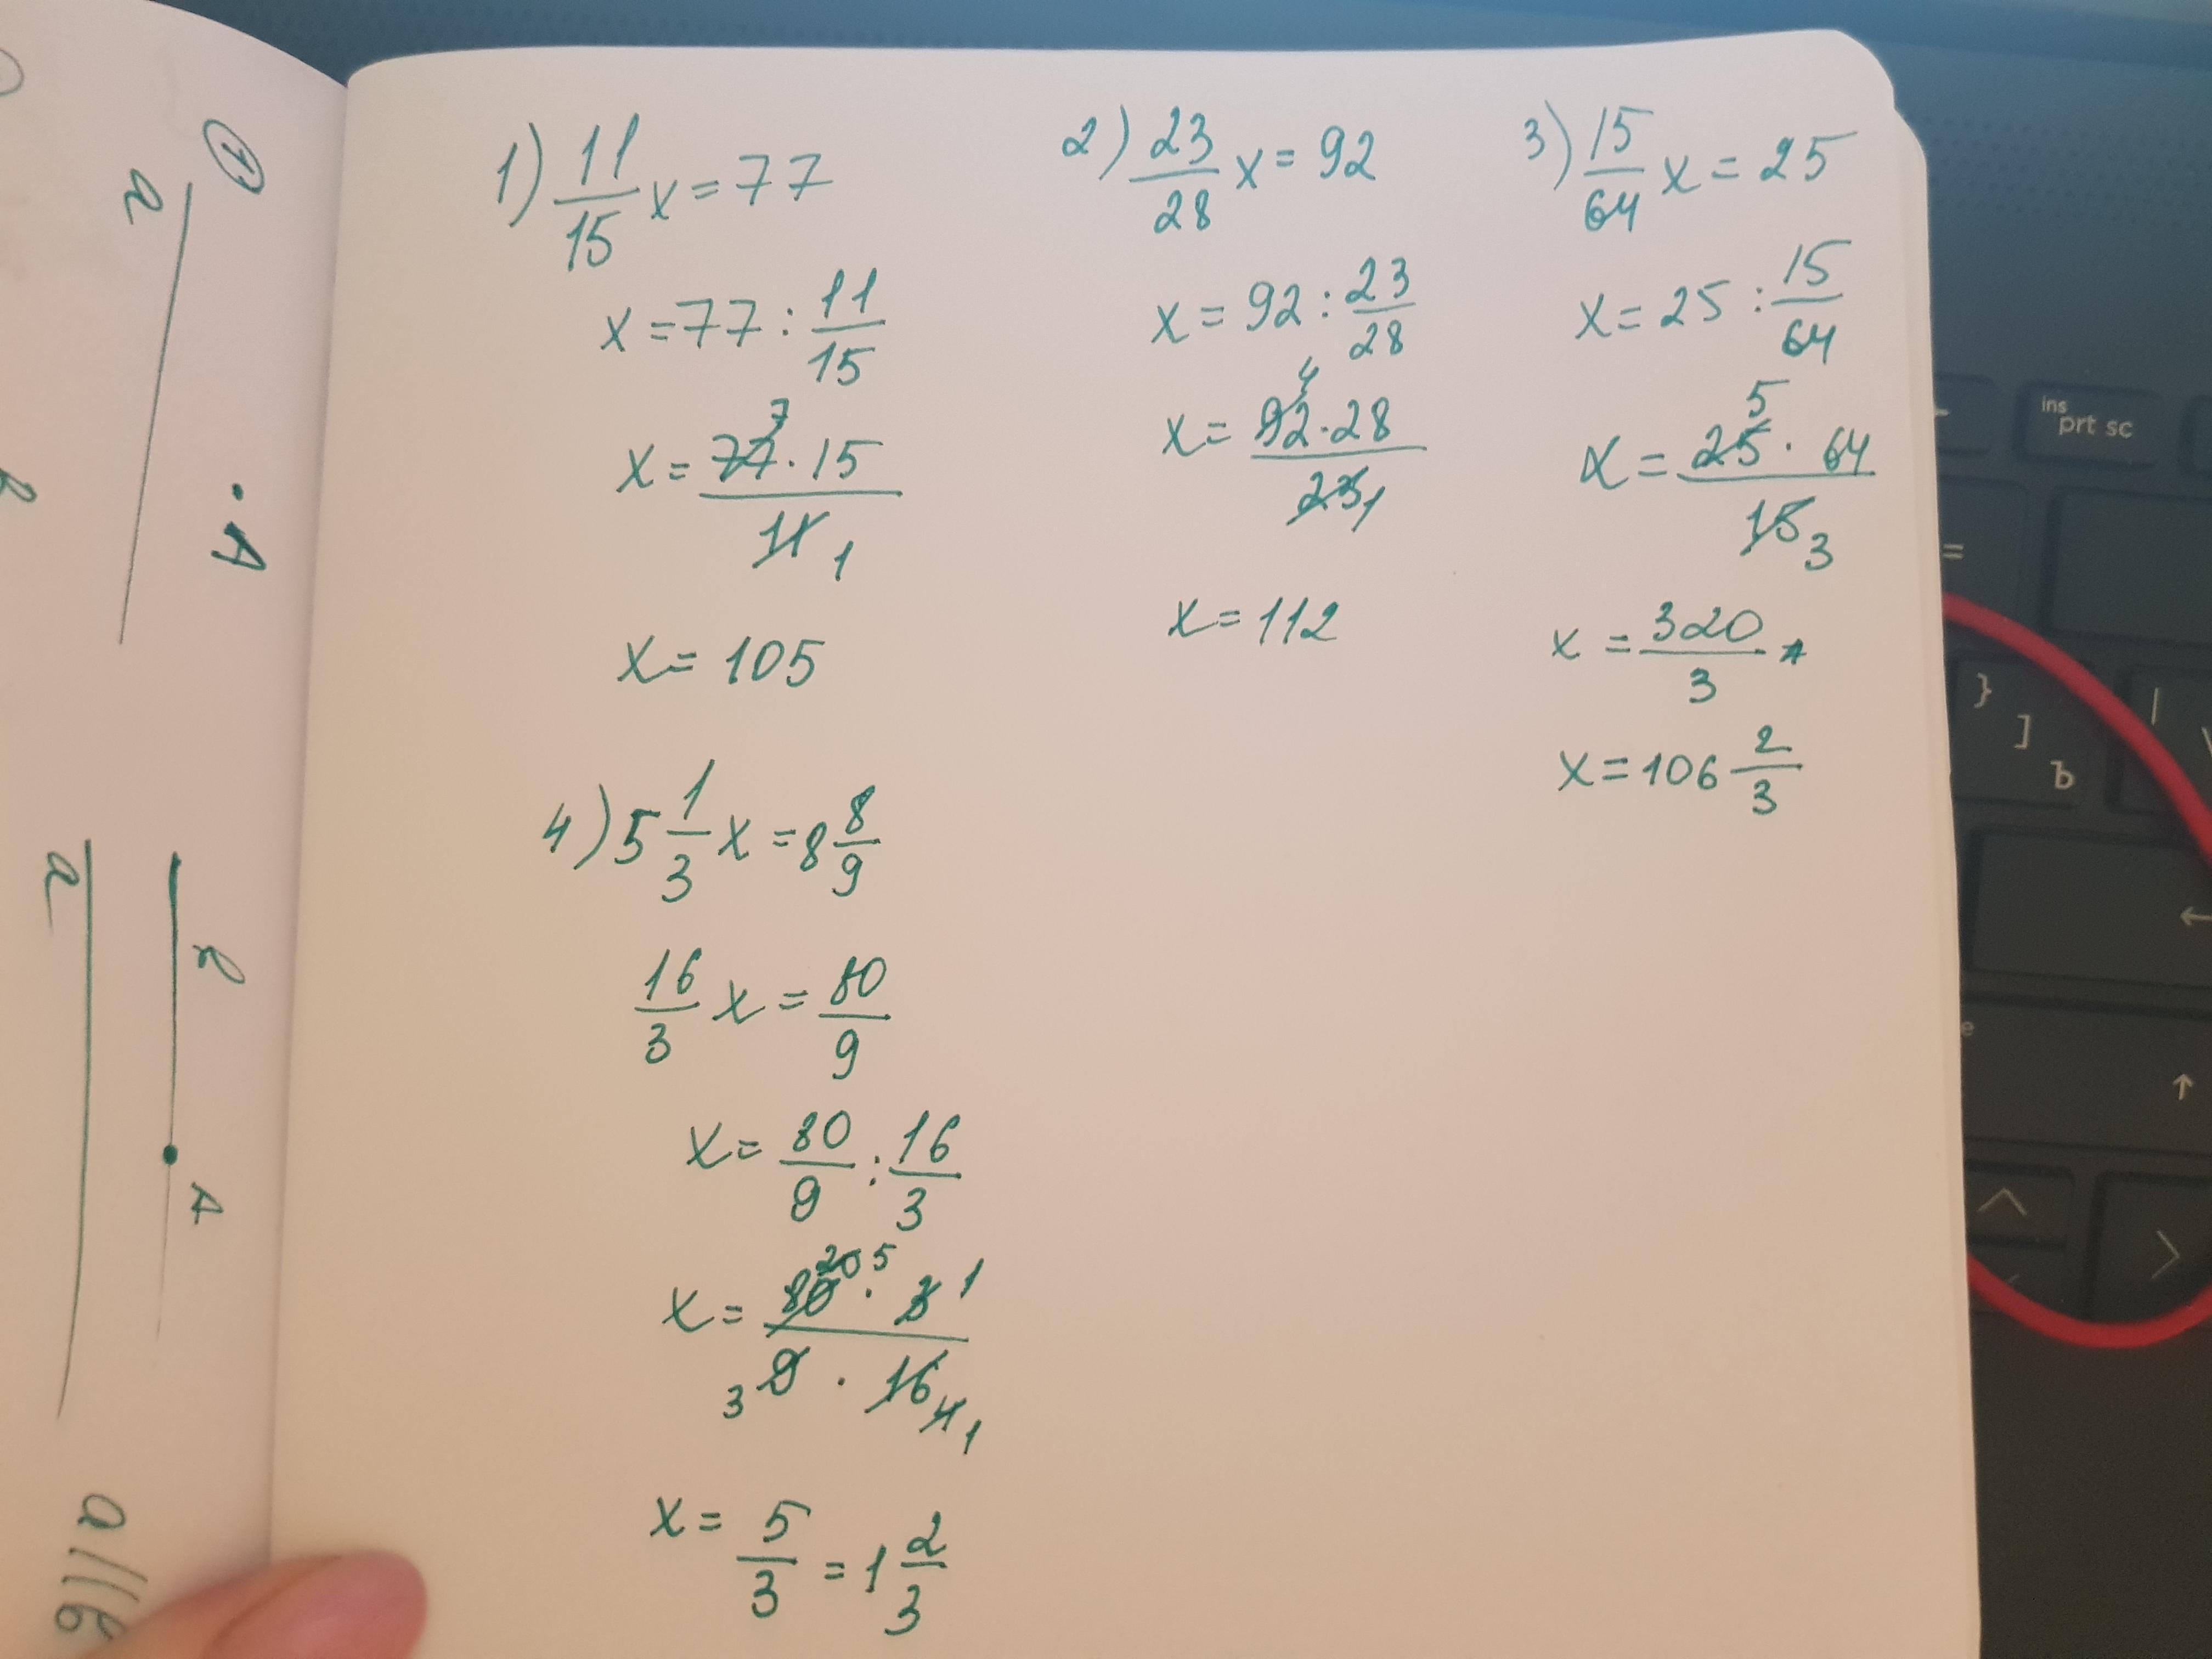 1) 11/15 x = 77
x = 77 : 11/15
x = 77 7 · 15 / 11 1
x = 105
2) 23/28 x = 92
x = 92 : 23/28
x = 92 4 · 28 / 23 1
x = 112
3) 15/64 x = 25
x = 25 : 15/64
x = 25 5 · 64 / 15 3
x = 320/3
x = 106 2/3
4) 5 1/3 x = 8 8/9
16/3 x = 80/9
x = 80/9 : 16/3
x = 80 20 5 · 3 1 / 3 9 · 16 4 1
x = 5/3 = 1 2/3
a
A
a
A
a||b
ins
prt sc
=
}
]
Ъ
|
\
←
↑
>